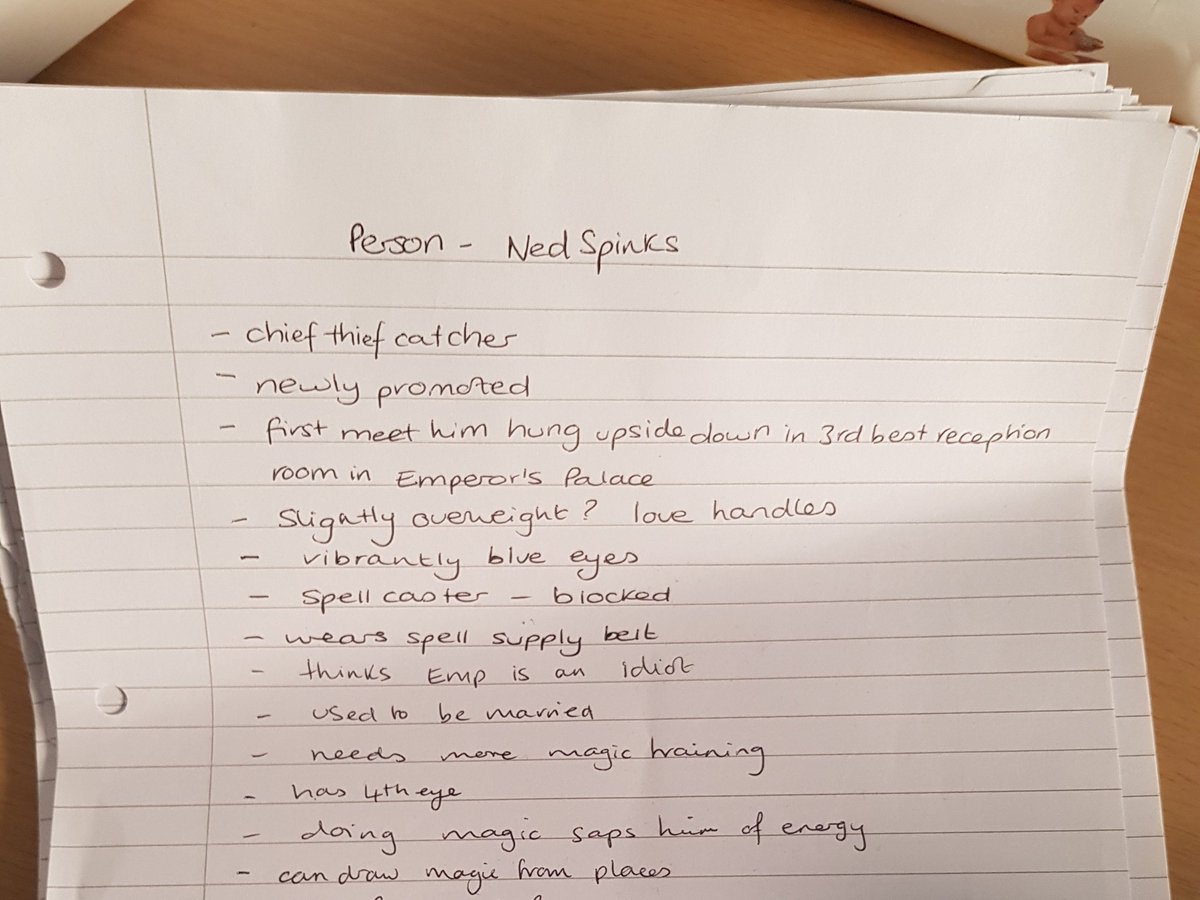 Person - Ned Spinks
- chief thief catcher
- newly promoted
- first meet him hung upside down in 3rd best reception
room in Emperor's Palace
- Slightly overweight? love handles
- vibrantly blue eyes
- Spell caster - blocked
- wears spell supply belt
- thinks Emp is an idiot
- used to be married
- needs more magic training
- has 4th eye
- doing magic saps him of energy
- can draw magic from places